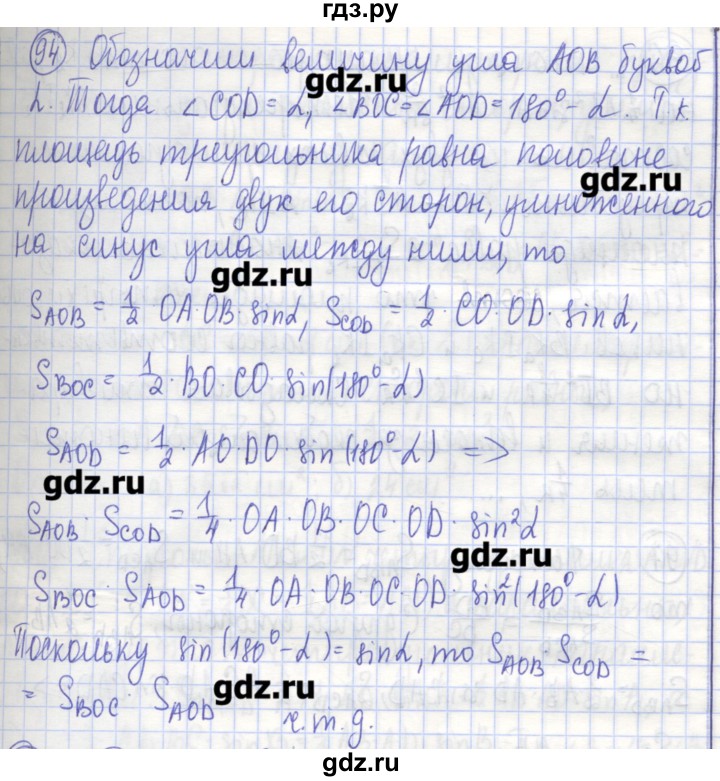 гдз.ру
94 Обозначим величину угла AOB буквоб
gdz.ru
α. Тогда ∠COD = α, ∠BOC = ∠AOD = 180° - α. Т к
площадь треугольника равна половине
gdz.ru
произведения двух его сторон, умноженного
на синус угла между ними, то
gdz.ru
S_AOB = 1/2 OA·OB·sinα, S_COD = 1/2·CO·OD·sinα,
S_BOC = 1/2·BO·CO·sin(180°-α)
S_AOD = 1/2·AO·DO·sin(180°-α) =>
gdz.ru
S_AOB · S_COD = 1/4·OA·OB·OC·OD·sin²α
gdz.ru
S_BOC · S_AOD = 1/4·OA·OB·OC·OD·sin²(180°-α)
Поскольку sin(180°-α) = sinα, то S_AOB · S_COD =
= S_BOC · S_AOD ч.т.д.
gdz.ru
gdz.ru